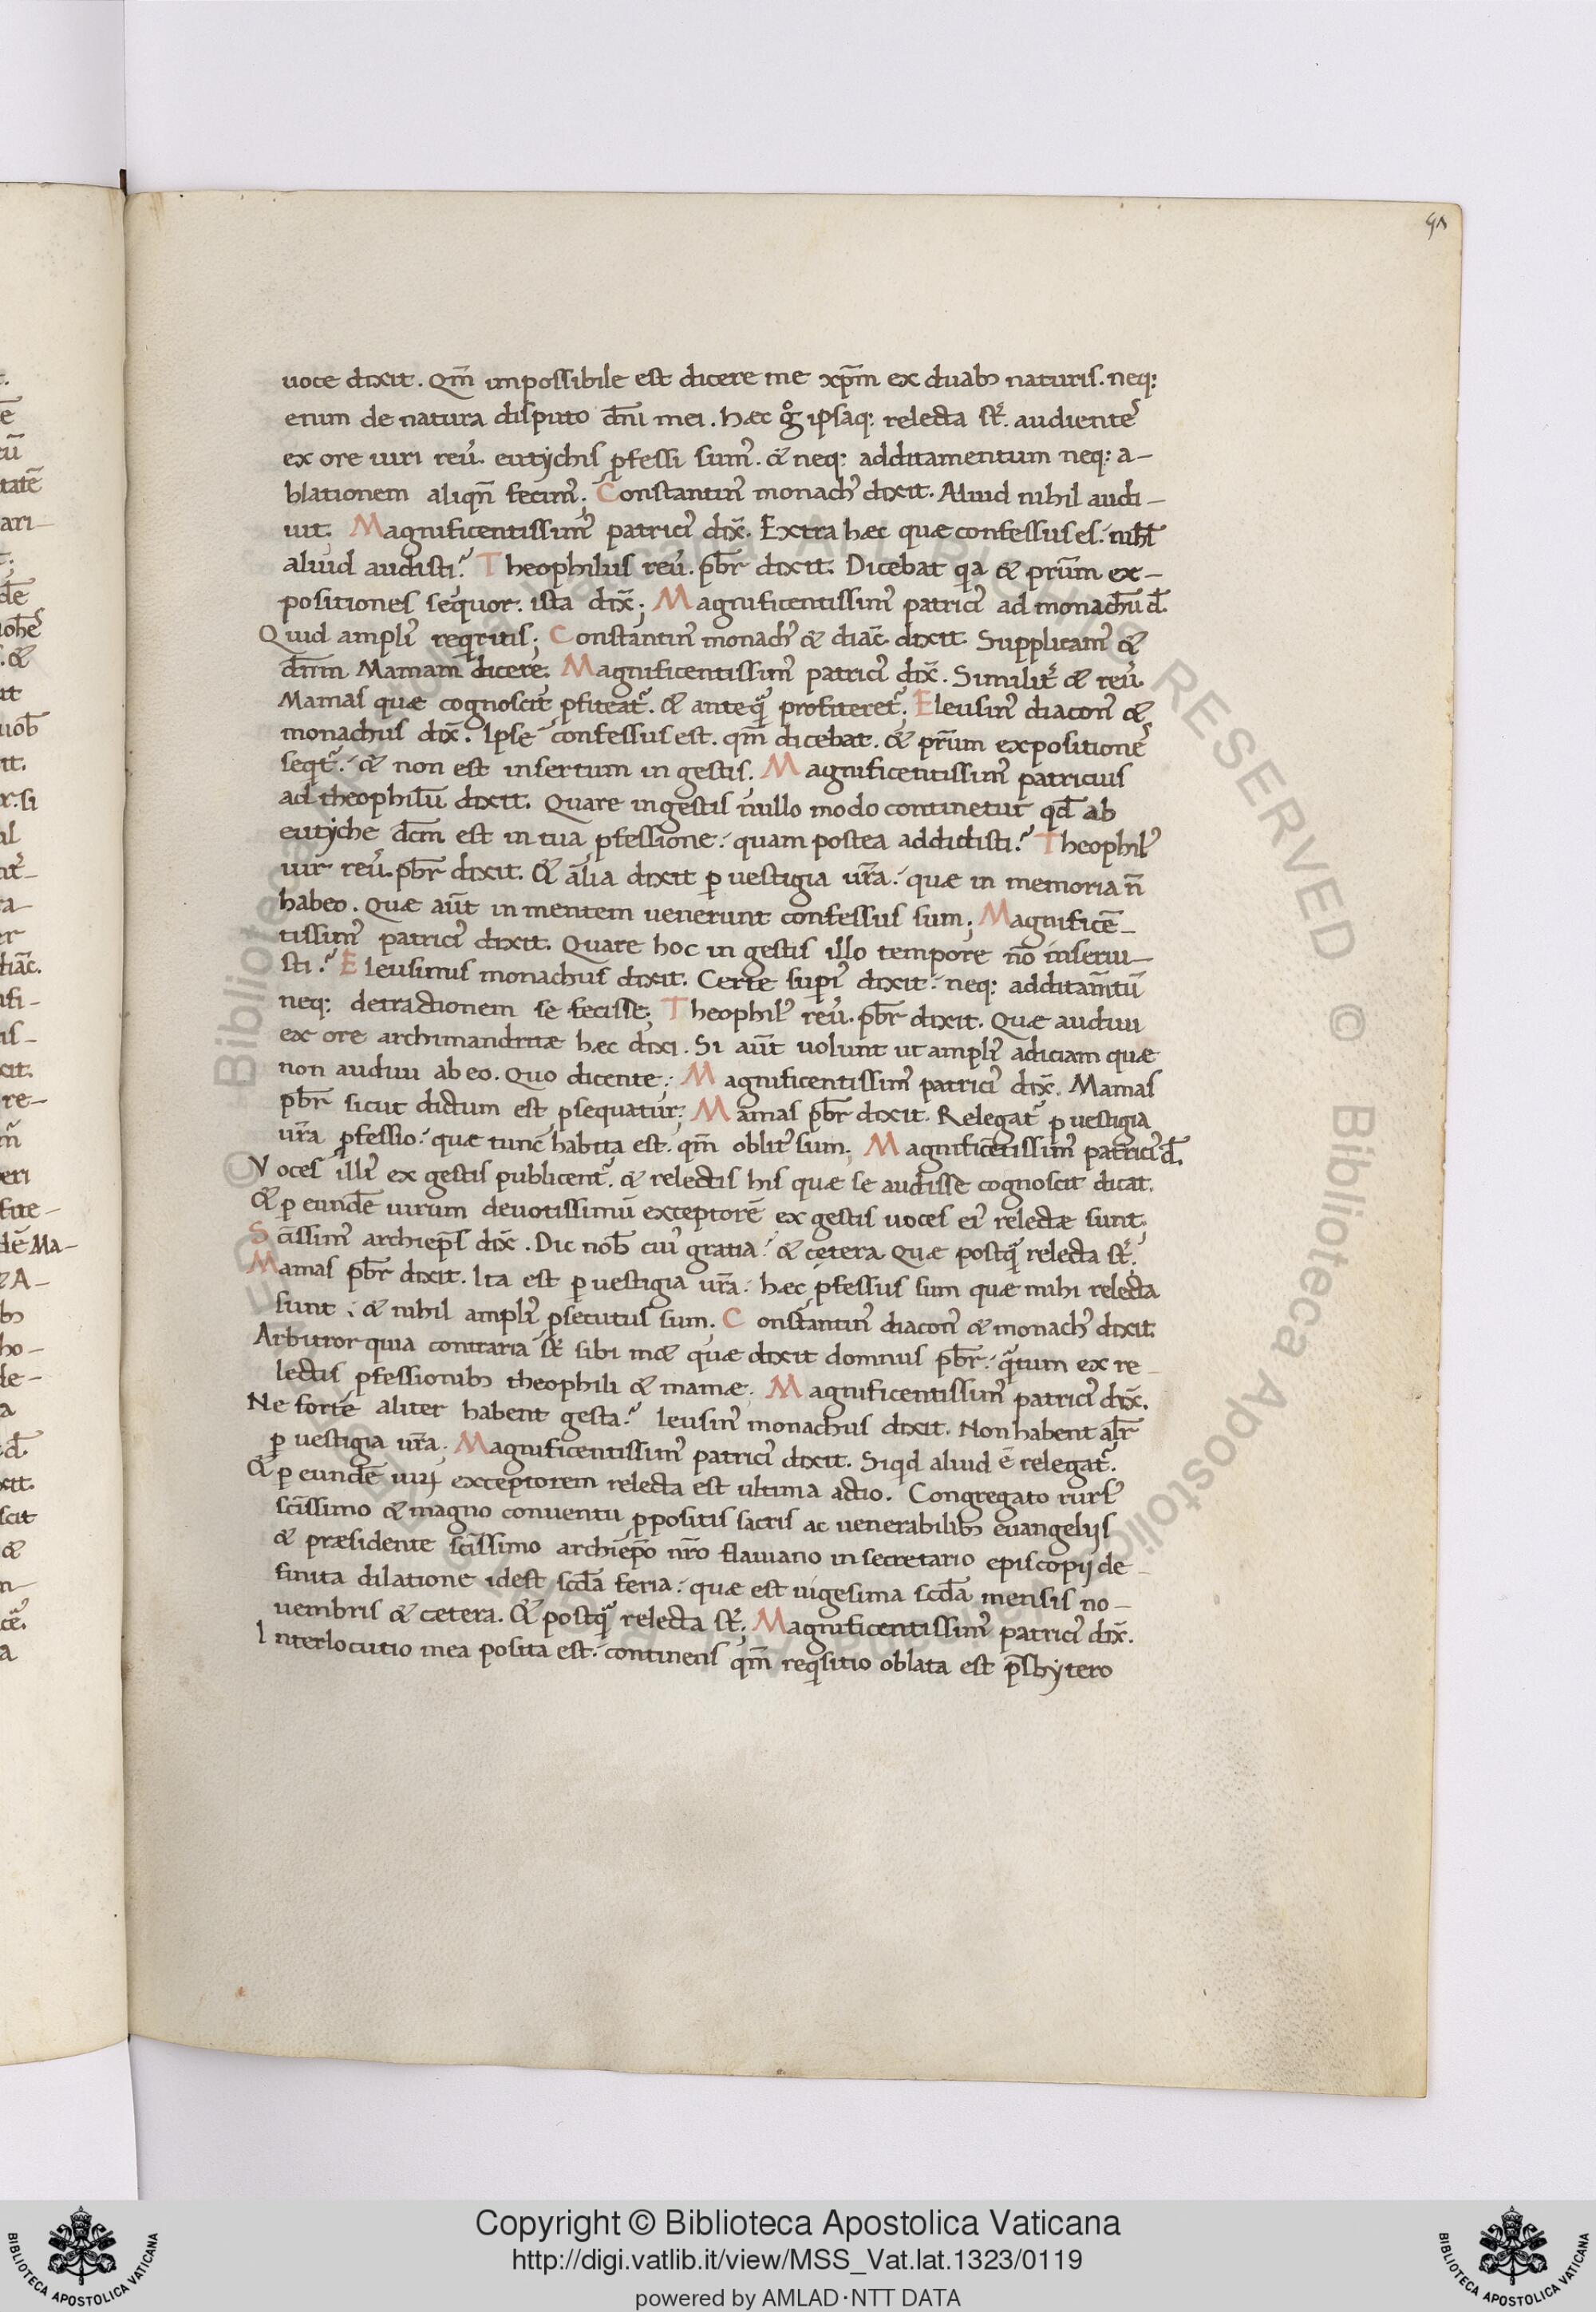 51
uoce dixit. qm̄ impossibile est dicere me xp̄m ex duab; naturis. neq;
enim de natura disputo dn̄i mei. hæc g̊ ipsaq; relecta st̄. audientes
ex ore uiri reu̓. eutychis ꝓfessi sumꝰ. & neq; additamentum neq; a-
blationem aliqn̄ fecimꝰ; Constantinꝰ monachꝰ dixit. Aliud nihil audi-
uit. Magnificentissimꝰ patriciꝰ dix̄. Extra hæc quæ confessus es. nihl̄
aliud audisti? Theophilus reu̓. pbr̄ dixit. Dicebat qia & pr̄um ex-
positiones sequor. ista dix̄; Magnificentissimꝰ patriciꝰ ad monachū d̄.
Quid ampliꝰ reqritis; Constantinꝰ monachꝰ & diac̄ dixit. Supplicamꝰ &
dn̄m Mamam dicere. Magnificentissimꝰ patriciꝰ dix̄. Similit̓ & reu̓.
Mamas quæ cognoscit ꝓfiteat̓. & anteq̄ profiteret̓; Eleusinꝰ diaconꝰ &
monachus dix̄. Ipse confessus est. qm̄ dicebat. & pr̄um expositiones
seqt̓. & non est insertum in gestis. Magnificentissimꝰ patricius
ad theophilū dixit. Quare in gestis nullo modo continetur qd̄ ab
eutyche dc̄m est in tua ꝓfessione. quam postea addidisti? Theophilꝰ
uir reu̓. pbr̄ dixit. & alia dixit ꝑ uestigia ur̄a. quæ in memoria n̄
habeo. Quæ aut̄ in mentem uenerunt confessus sum; Magnificē-
tissimꝰ patriciꝰ dixit. Quare hoc in gestis illo tempore nō inserui-
sti? Eleusinus monachus dixit. Certe supiꝰ dixit. neq; additam̄tū
neq; detractionem se fecisse; Theophilꝰ reu̓. pbr̄ dixit. Quæ audiui
ex ore archimandritæ hæc dixi. Si aut̄ uolunt ut ampliꝰ adiciam quæ
non audiui ab eo. Quo dicente; Magnificentissimꝰ patriciꝰ dix̄. Mamas
pbr̄ sicut dictum est ꝓsequatur; Mamas pbr̄ dixit. Relegat̓ ꝑ uestigia
ur̄a ꝓfessio. quæ tunc habita est. qm̄ oblitꝰ sum; Magnificētissimꝰ patriciꝰ d̄.
Voces illiꝰ ex gestis publicent̓. & relectis his quæ se audisse cognoscit dicat.
& ꝑ eundē uirum deuotissimū exceptorē ex gestis uoces eiꝰ relectæ sunt;
Sc̄issimꝰ archiep̄s dix̄. Dic nob̄ cuiꝰ gratia. & cetera. Quæ postq̄ relecta st̄.
Mamas pbr̄ dixit. Ita est ꝑ uestigia ur̄a. hæc ꝓfessus sum quæ mihi relecta
sunt. & nihil ampliꝰ ꝓsecutus sum. Constantinꝰ diaconꝰ & monachꝰ dixit.
Arbitror quia contraria st̄ sibi met quæ dixit domnus pbr̄. q̄tum ex re-
lectis ꝓfessionib; theophili & mamæ. Magnificentissimꝰ patriciꝰ dix̄.
Ne forte aliter habent gesta? leusinꝰ monachus dixit. Non habent alr̄
ꝑ uestigia ur̄a. Magnificentissimꝰ patriciꝰ dixit. Siqd aliud ē relegat̓.
& ꝑ eundē uiꝝ exceptorem relecta est ultima actio. Congregato rursꝰ
sc̄issimo & magno conuentu ꝓpositis sacris ac uenerabilib; euangelijs
& præsidente sc̄issimo archiep̄o nr̄o flauiano in secretario episcopij de-
finita dilatione idest scd̄a feria. quæ est uigesima scd̄a mensis no-
uembris & cetera. & postq̄ relecta st̄; Magnificentissimꝰ patriciꝰ dix̄.
Interlocutio mea posita est. continens qm̄ reqsitio oblata est p̄sbytero
Copyright © Biblioteca Apostolica Vaticana
http://digi.vatlib.it/view/MSS_Vat.lat.1323/0119
powered by AMLAD·NTT DATA